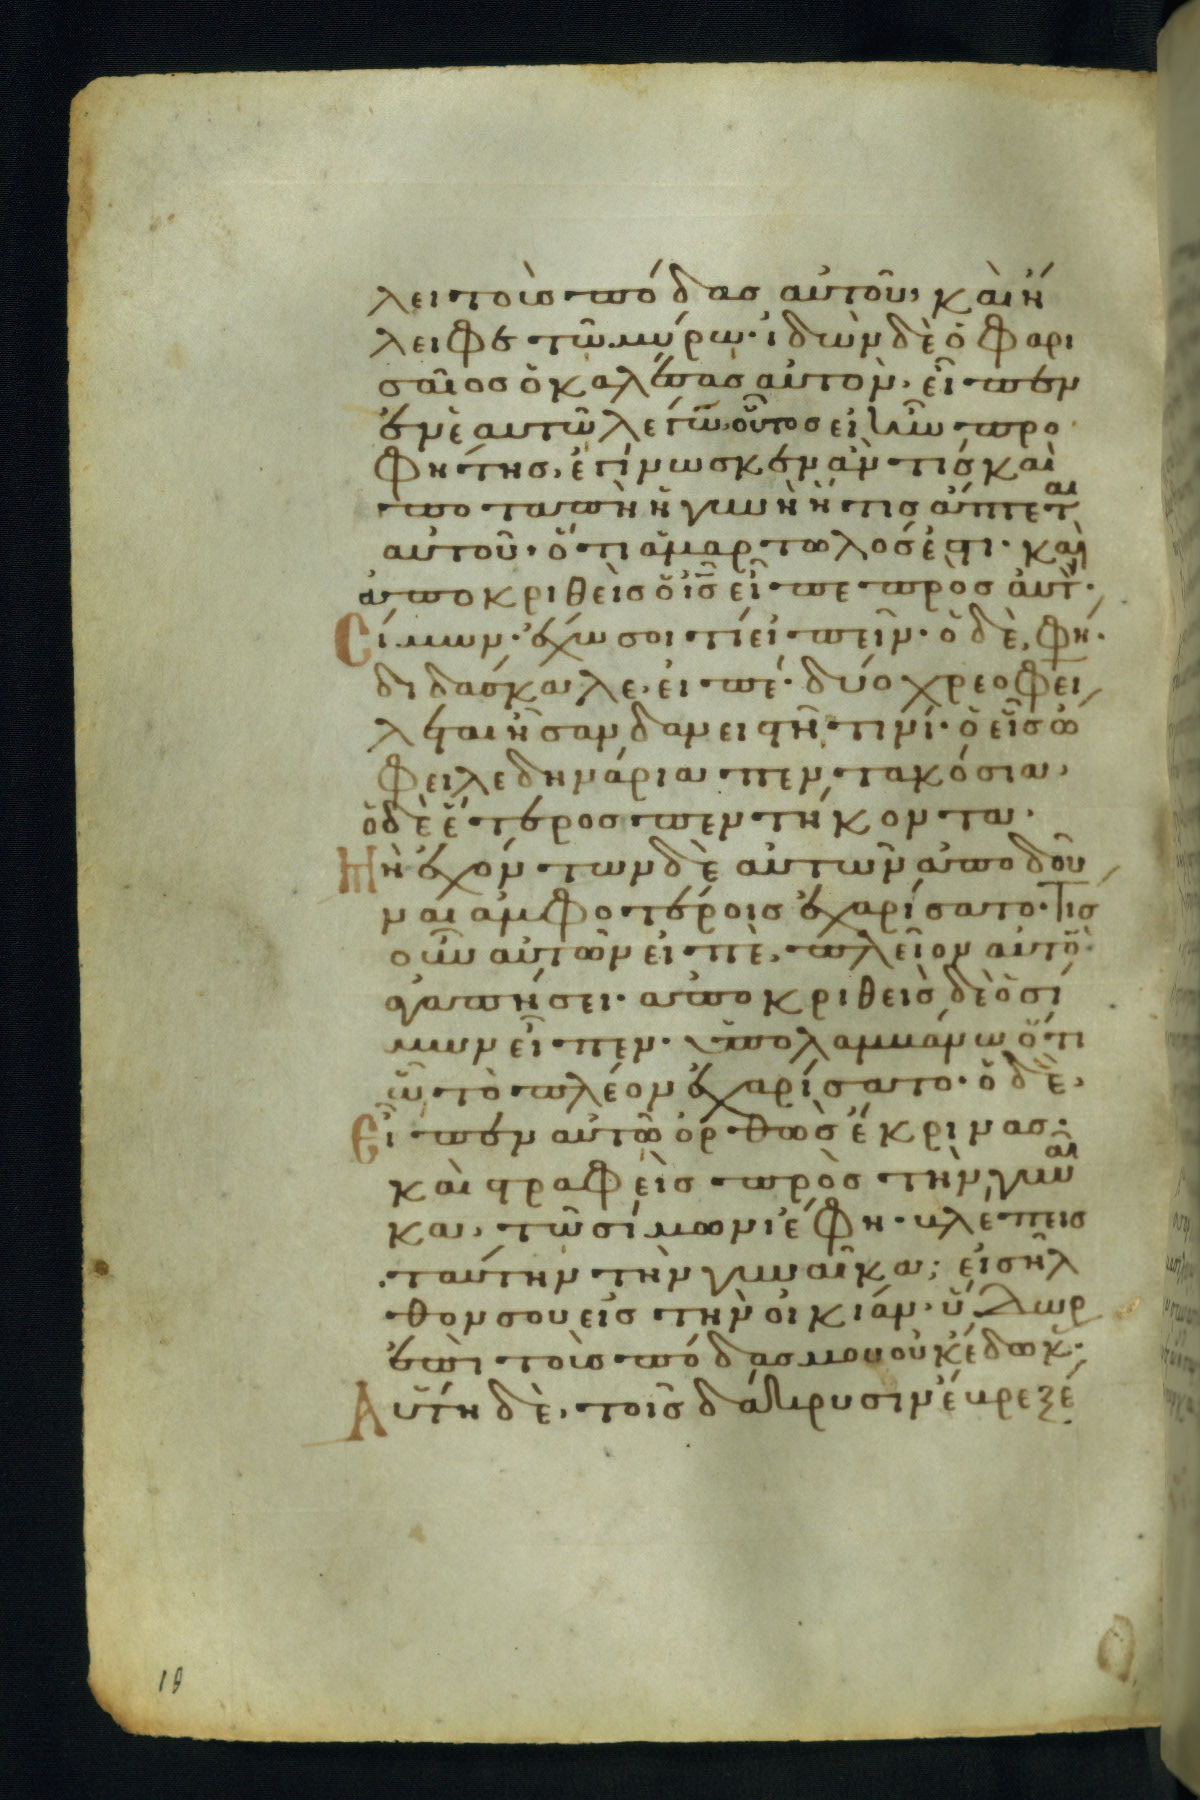 λει τοὺσ πόδασ αὐτοῦ, καὶ ἤ
λειφε τῷ μύρῳ· ἰδὼν δὲ ὁ φαρι
σαῖοσ ὁ καλέσασ αὐτὸν, εἶπεν
ἐν ἑαυτῶ λέγων· οὗτοσ εἰ ἦν προ
φήτησ, ἐγίνωσκεν ἂν τίσ καὶ
ποταπὴ ἡ γυνὴ ἥτισ ἅπτεται
αὐτοῦ· ὅτι ἁμαρτωλόσ ἐστι· καὶ
ἀποκριθεὶσ ὁ ἰσ εἶπε πρὸσ αὐτ·
Σίμων· ἔχω σοι τί εἰπεῖν· ὁ δὲ, φη·
διδάσκαλε, εἰπέ· δύο χρεοφει
λέται ἦσαν δανειστῆ τινί· ὁ εἷσ ὤ
φειλε δηνάρια πεντακόσια,
ὁ δὲ ἕτεροσ πεντήκοντα.
Μὴ ἐχόντων δὲ αὐτῶν ἀποδοῦ
ναι ἀμφοτέροισ ἐχαρίσατο· Τίσ
οὖν αὐτῶν εἰπὲ, πλεῖον αὐτὸ
ἀγαπήσει· ἀποκριθεὶσ δὲ ὁ σί
μων εἶπεν· ὑπολαμβάνω ὅτι
ᾧ τὸ πλέον ἐχαρίσατο· ὁ δὲ,
Εἶπεν αὐτῶ ὀρθῶσ ἔκρινασ·
καὶ στραφεὶσ πρὸσ τὴν γυναῖ
κα, τῷ σίμωνι ἔφη· βλέπεισ
ταύτην τὴν γυναῖκα; εἰσῆλ
θον σου εἰσ τὴν οἰκίαν· ὕδωρ
ἐπὶ τοὺσ πόδασ μου οὐκ ἔδωκ·
Αὕτη δὲ, τοῖσ δάκρυσιν ἔβρεξέ
19